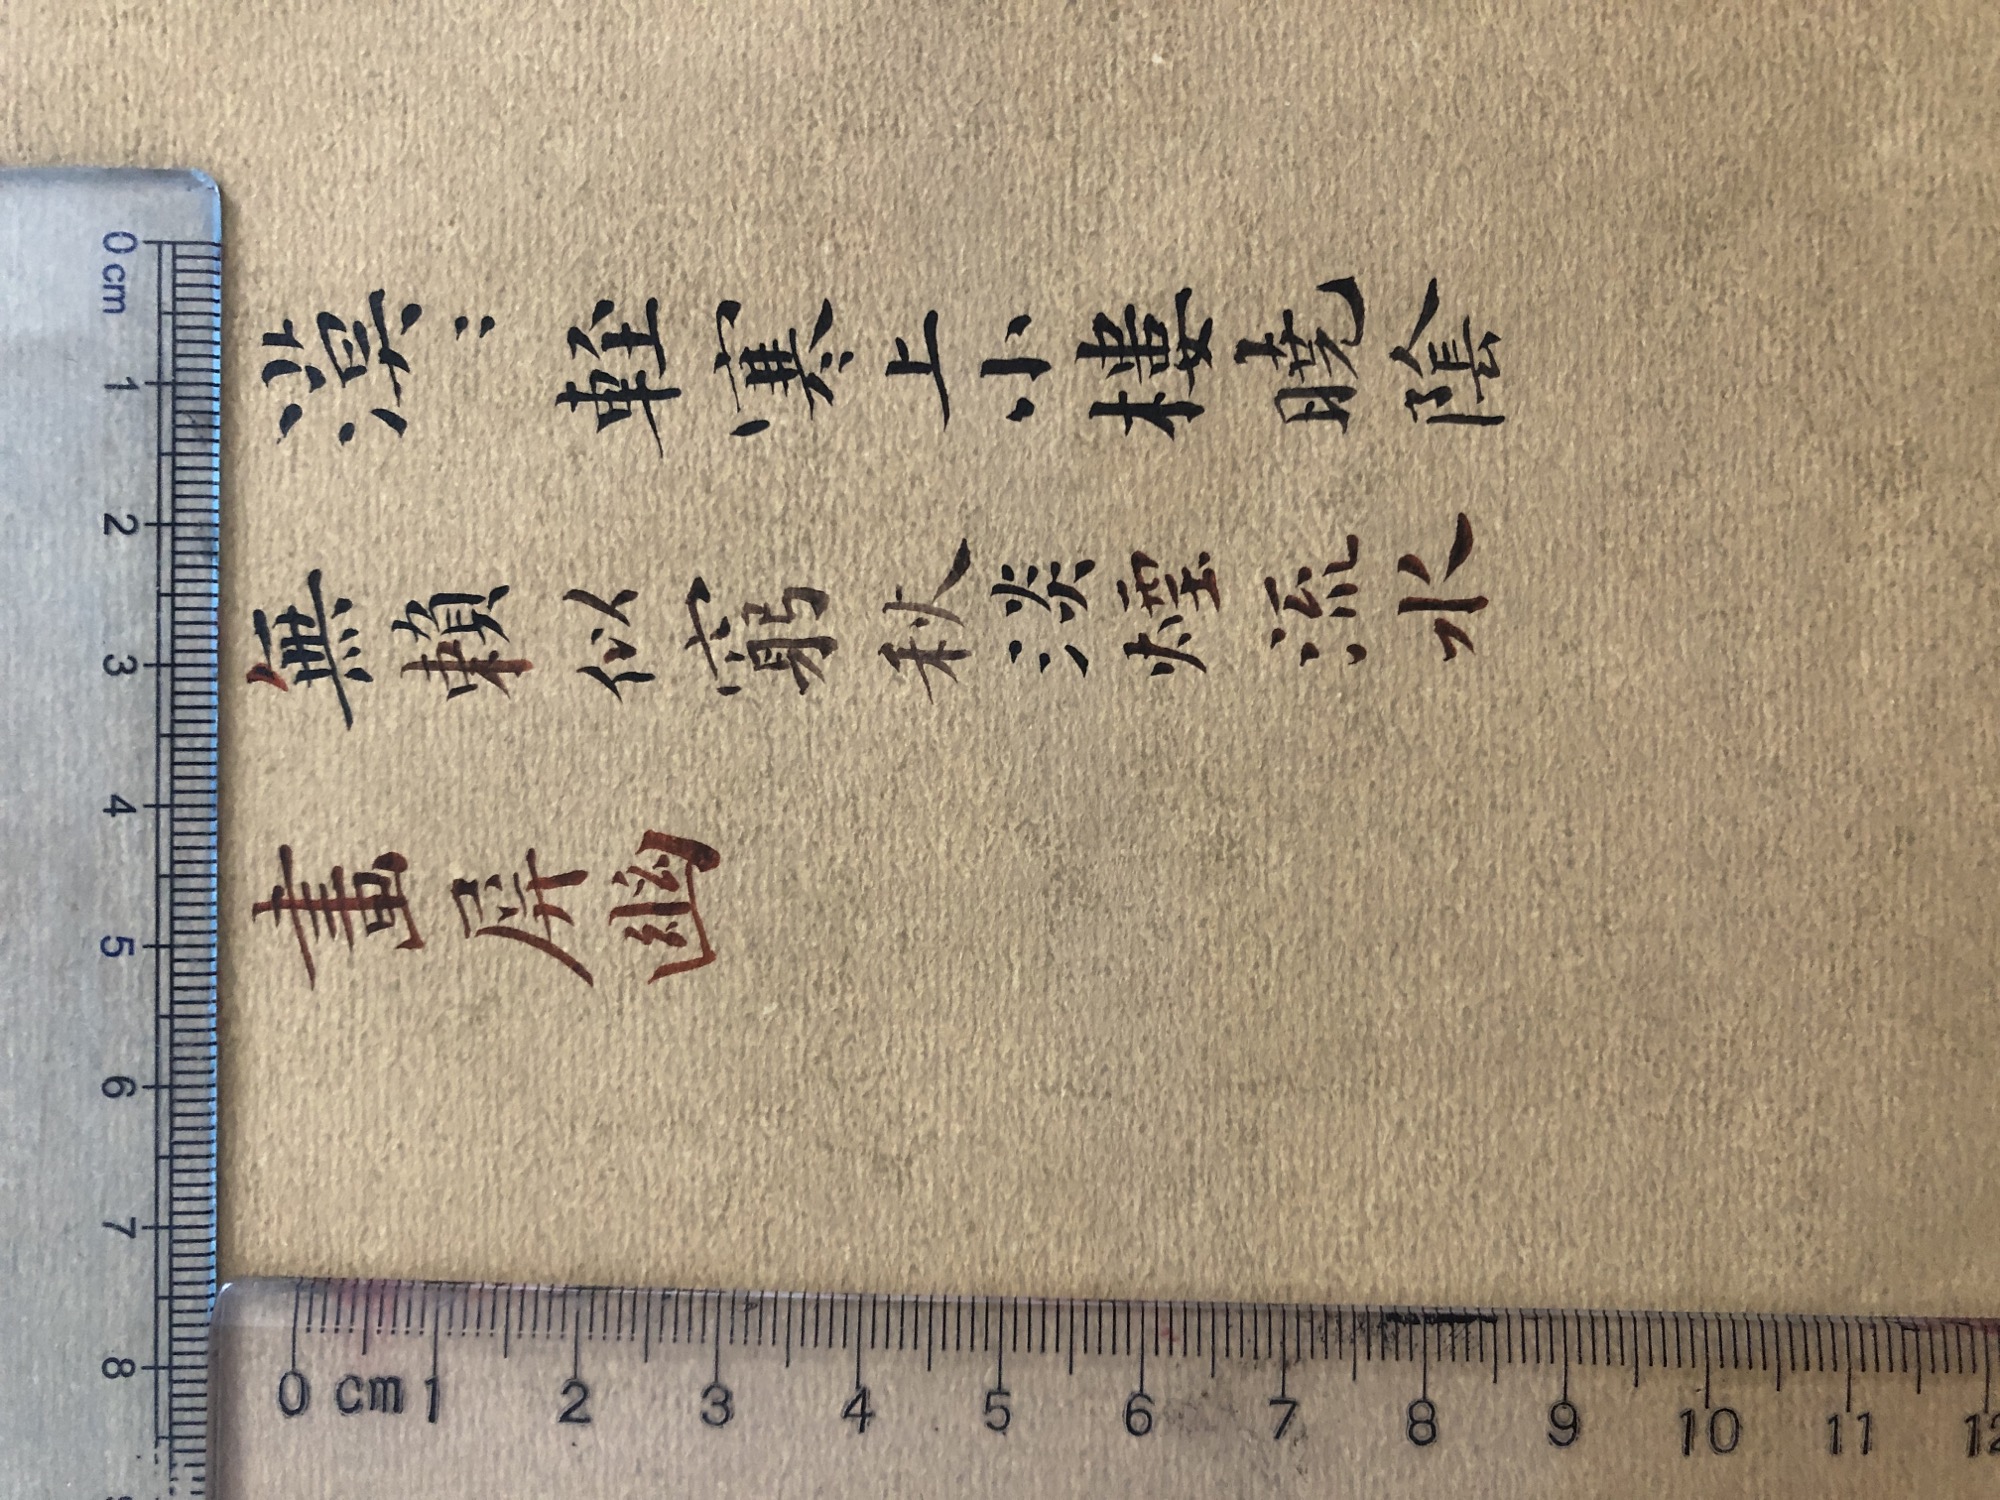 漠〻輕寒上小樓曉陰
無賴似窮秋淡煙流水
畫屏幽
0 cm 1 2 3 4 5 6 7 8
0 cm 1 2 3 4 5 6 7 8 9 10 11 12